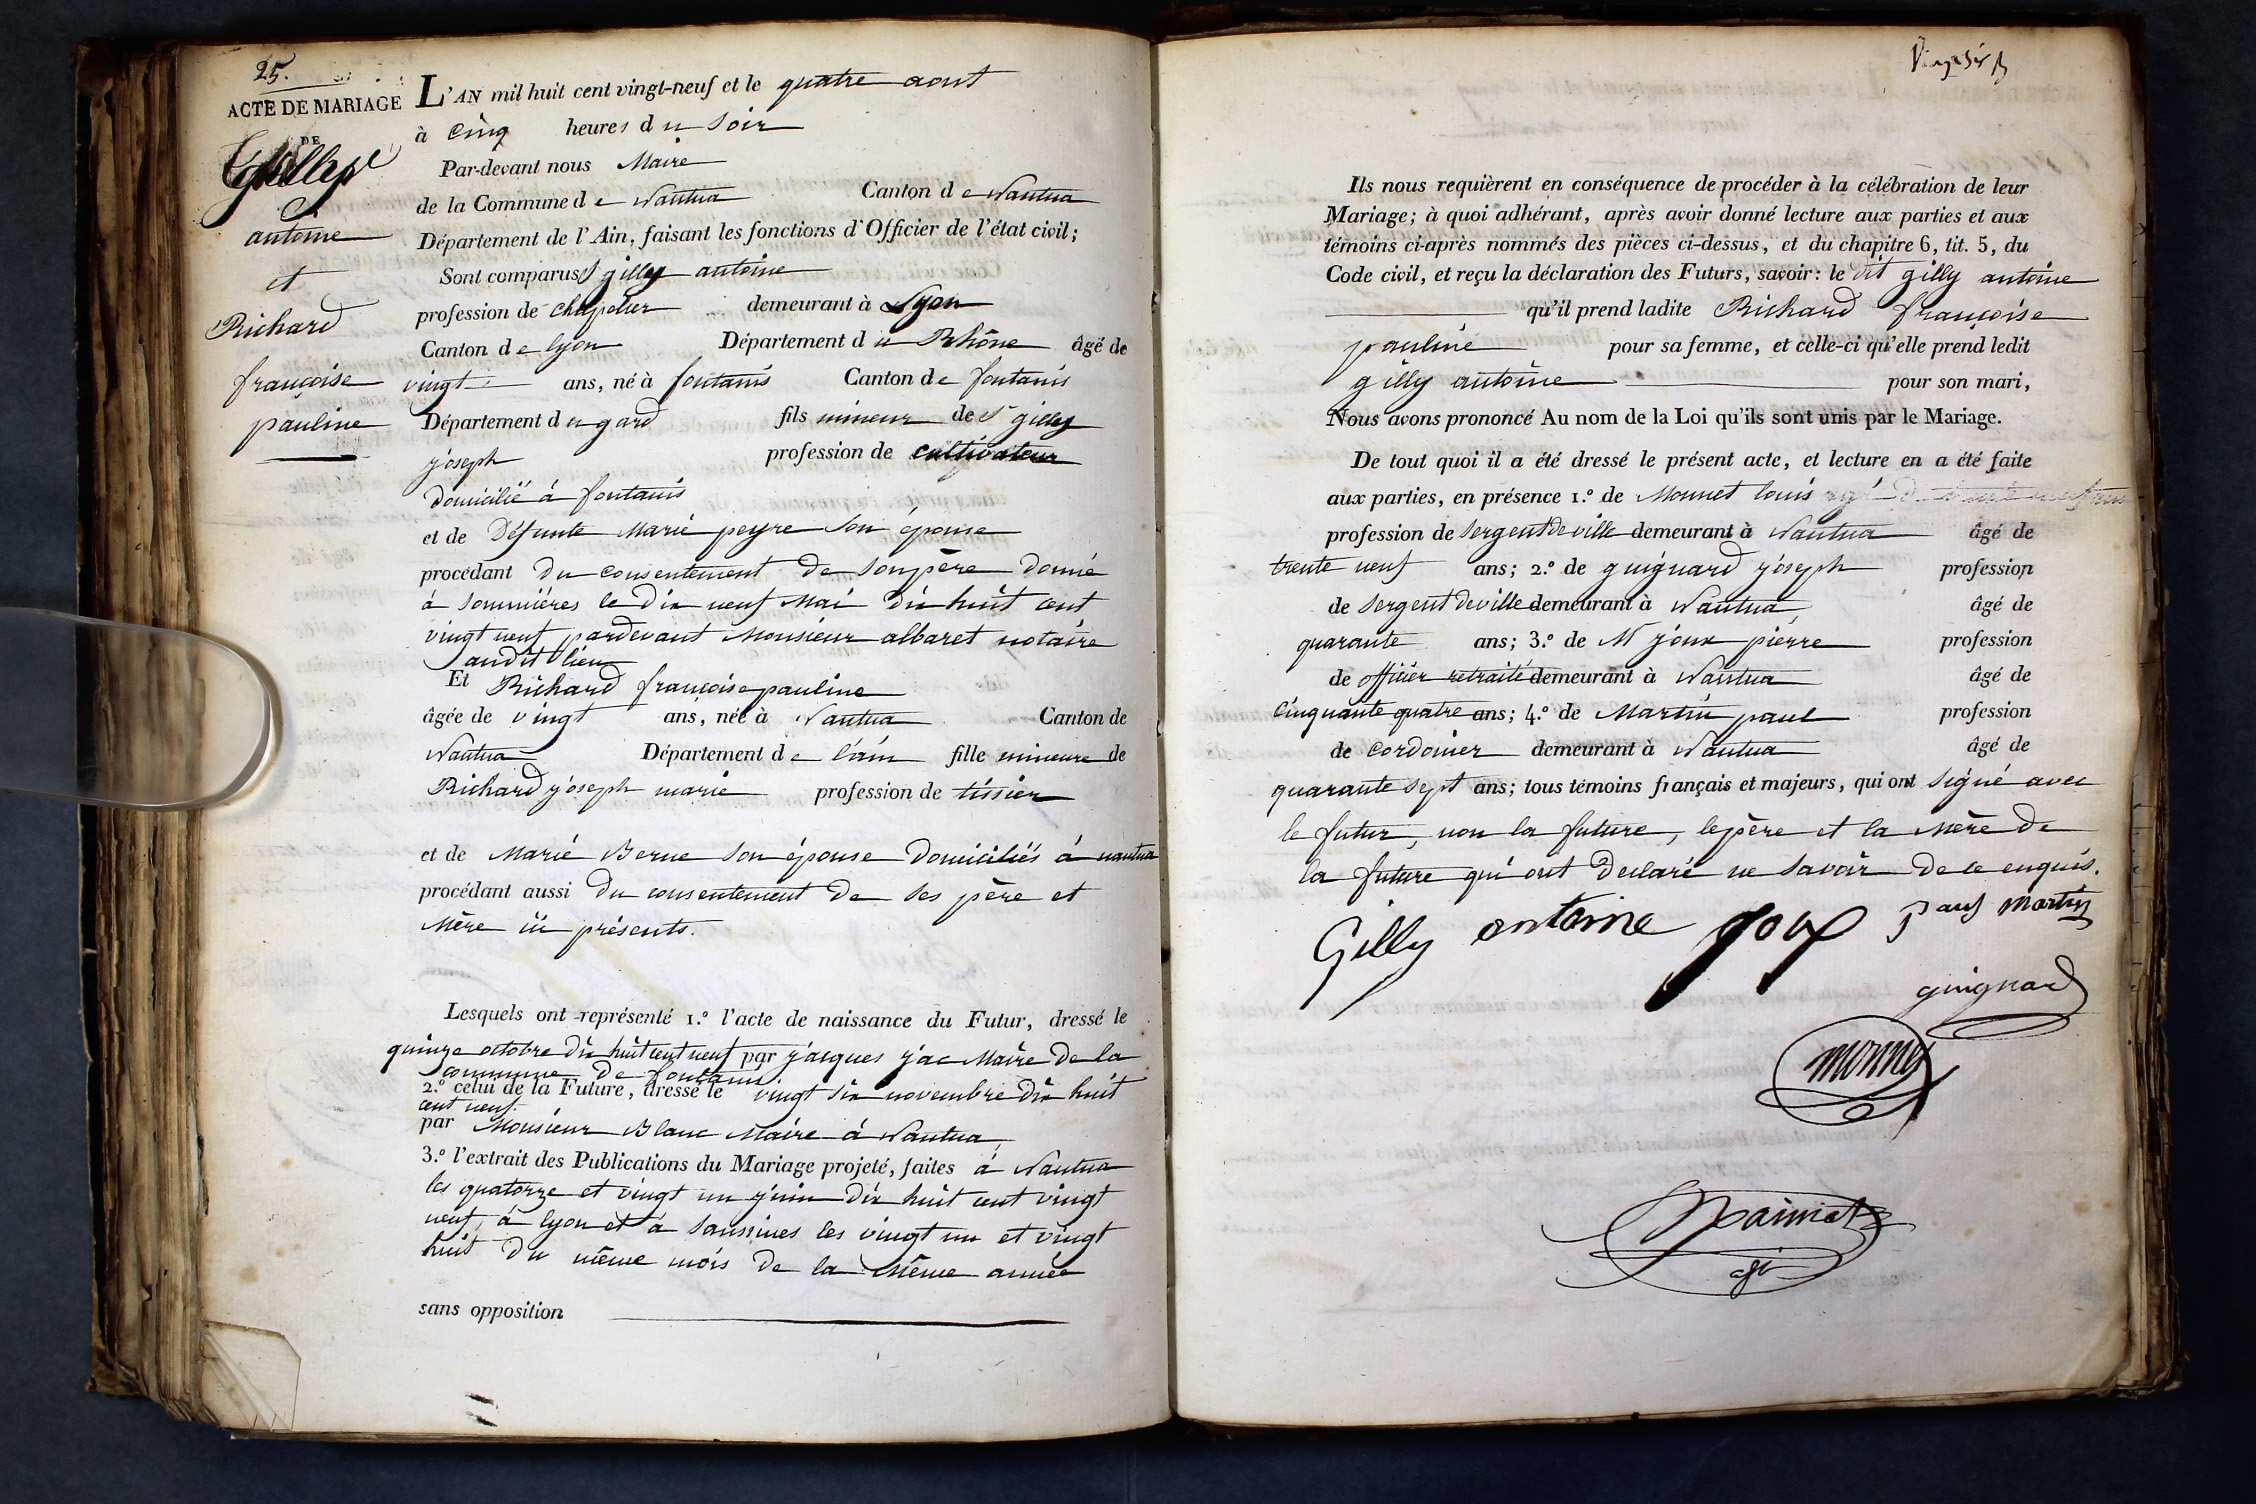 25.
ACTE DE MARIAGE
DE
Gilly
antoine
et
Richard
françoise
pauline
L'AN mil huit cent vingt-neuf et le quatre aout
à cinq heures du soir
Par-devant nous Maire
de la Commune de Nantua Canton de Nantua
Département de l'Ain, faisant les fonctions d'Officier de l'état civil;
Sont comparus S gilly antoine
profession de chapelier demeurant à Lyon
Canton de lyon Département du Rhône âgé de
vingt ans, né à fontanis Canton de fontanis
Département du gard fils mineur de Sr gilly
joseph profession de cultivateur
domicilié à fontanis
et de Defunte Marie peyre son épouse
procédant du consentement de son père donné
à sommières le dix neuf Mai dix huit cent
vingt neuf pardevant Monsieur albaret notaire
audit lieu
Et Richard françoise pauline
âgée de vingt ans, née à Nantua Canton de
Nantua Département de l'ain fille mineure de
Richard joseph marie profession de tissier
et de Marie Berne son épouse domiciliés à nantua
procédant aussi du consentement de ses père et
Mère ici présents.
Lesquels ont représenté 1.º l'acte de naissance du Futur, dressé le
quinze octobre dix huit cent neuf par jacques jac Maire de la
commune de fontanis
2.º celui de la Future, dressé le vingt six novembre dix huit
cent neuf.
par Monsieur Blanc Maire à Nantua
3.º l'extrait des Publications du Mariage projeté, faites à Nantua
les quatorze et vingt un juin dix huit cent vingt
neuf, à lyon et à saussines les vingt un et vingt
huit du même mois de la Même année
sans opposition
Ils nous requièrent en conséquence de procéder à la célébration de leur
Mariage; à quoi adhérant, après avoir donné lecture aux parties et aux
témoins ci-après nommés des pièces ci-dessus, et du chapitre 6, tit. 5, du
Code civil, et reçu la déclaration des Futurs, savoir: le dit gilly antoine
qu'il prend ladite Richard françoise
pauline pour sa femme, et celle-ci qu'elle prend ledit
gilly antoine pour son mari,
Nous avons prononcé Au nom de la Loi qu'ils sont unis par le Mariage.
De tout quoi il a été dressé le présent acte, et lecture en a été faite
aux parties, en présence 1.º de Monnet louis
profession de sergent de ville demeurant à Nantua âgé de
trente neuf ans; 2.º de guignard joseph profession
de sergent de ville demeurant à Nantua âgé de
quarante ans; 3.º de Mr joux pierre profession
de officier retraité demeurant à Nantua âgé de
cinquante quatre ans; 4.º de Martin paul profession
de cordonier demeurant à Nantua âgé de
quarante sept ans; tous témoins français et majeurs, qui ont signé avec
le futur, non la future, le père et la Mère de
la future qui ont declaré ne savoir de ce enquis.
Gilly antoine joux Paul Martin
guignard
monnet